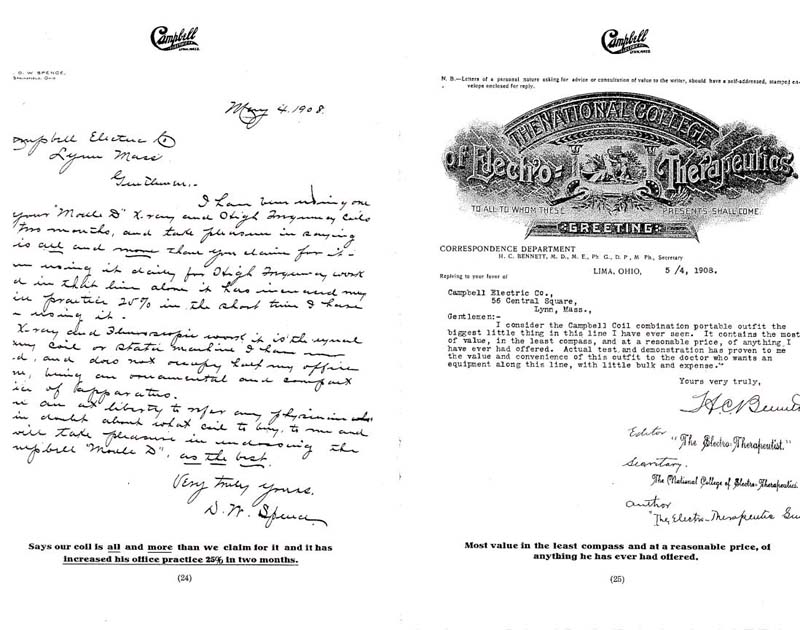 Campbell
ELECTRIC CO.
LYNN, MASS.
D. W. SPENCE,
SPRINGFIELD, OHIO
May 4. 1908.
mpbell Electric Co
Lynn Mass
Gentlemen:-
I have been using one
your "Model D" X-ray and High Frequency Coils
two months, and take pleasure in saying
is all and more than you claim for it-
m using it daily for High Frequency work
d in that line alone it has increased my
ice practice 25% in the short time I have
n using it.
X-ray and Fluoroscopic work it is the equal
any coil or static machine I have
d, and does not occupy half my office
m, being an ornamental and compact
ice of apparatus.
u are at liberty to refer any physician who
in doubt about what coil to buy, to me and
will take pleasure in endorsing the
mpbell "Model D", as the best.
Very truly yours.
D. W. Spence
Says our coil is all and more than we claim for it and it has
increased his office practice 25% in two months.
(24)
Campbell
ELECTRIC CO.
LYNN, MASS.
N. B.—Letters of a personal nature asking for advice or consultation of value to the writer, should have a self-addressed, stamped en-
velope enclosed for reply.
THE NATIONAL COLLEGE
of Electro-Therapeutics.
TO ALL TO WHOM THESE PRESENTS SHALL COME
GREETING
CORRESPONDENCE DEPARTMENT
H. C. BENNETT, M. D., M. E., Ph. G., D. P., M. Ph., Secretary
Replying to your favor of LIMA, OHIO, 5/4, 1908.
Campbell Electric Co.,
56 Central Square,
Lynn, Mass.,
Gentlemen:-
I consider the Campbell Coil combination portable outfit the
biggest little thing in this line I have ever seen. It contains the most
of value, in the least compass, and at a reasonable price, of anything I
have ever had offered. Actual test and demonstration has proven to me
the value and convenience of this outfit to the doctor who wants an
equipment along this line, with little bulk and expense."
Yours very truly,
H C Bennett
Editor "The Electro-Therapeutist."
Secretary.
The National College of Electro-Therapeutics.
Author
"The Electro-Therapeutic Gui
Most value in the least compass and at a reasonable price, of
anything he has ever had offered.
(25)